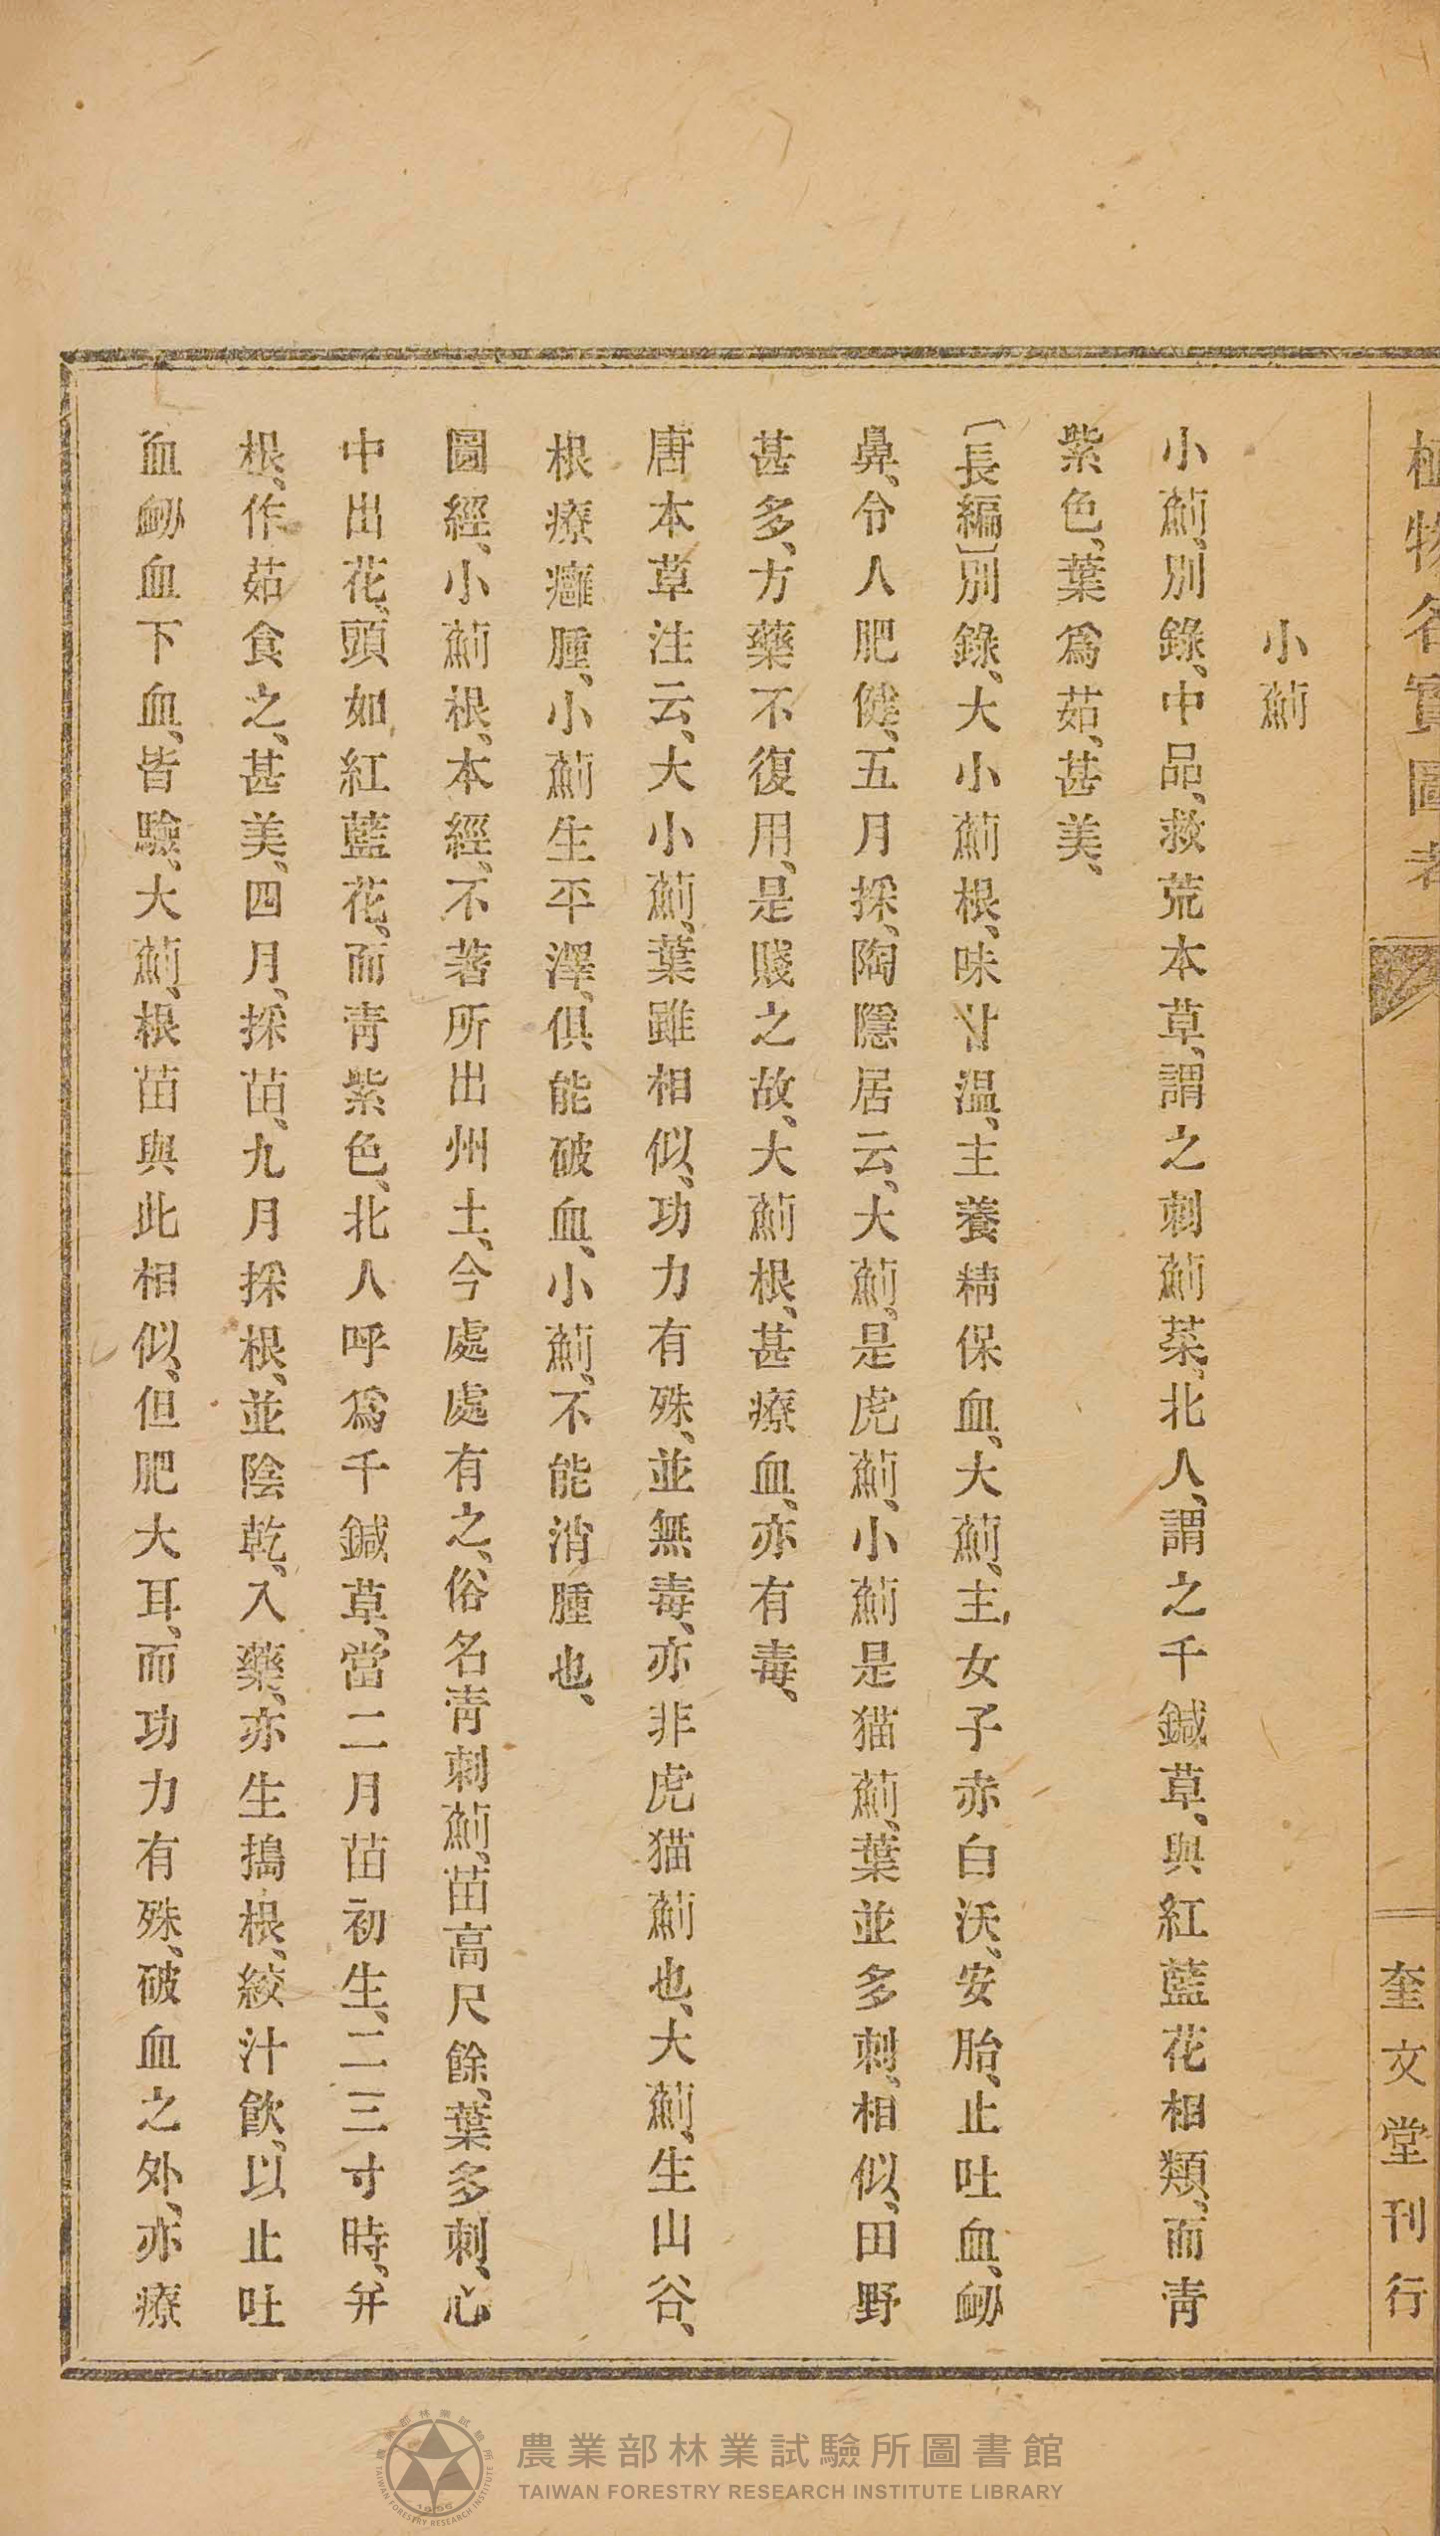 植物名實圖考
奎文堂刊行
小薊
小薊、別錄、中品、救荒本草、謂之刺薊菜、北人、謂之千鍼草、與紅藍花相類、而青
紫色、葉爲茹、甚美、
〔長編〕別錄、大小薊根、味甘温、主養精保血、大薊、主女子赤白沃、安胎、止吐血、衂
鼻、令人肥健、五月採、陶隱居云、大薊、是虎薊、小薊是猫薊、葉並多刺、相似、田野
甚多、方藥不復用、是賤之故、大薊根、甚療血、亦有毒、
唐本草注云、大小薊、葉雖相似、功力有殊、並無毒、亦非虎猫薊也、大薊、生山谷、
根療癰腫、小薊生平澤、俱能破血、小薊、不能消腫也、
圖經、小薊根、本經、不著所出州土、今處處有之、俗名青刺薊、苗高尺餘、葉多刺、心
中出花、頭如紅藍花、而青紫色、北人呼爲千鍼草、當二月苗初生、二三寸時、并
根、作茹食之、甚美、四月、採苗、九月採根、並陰乾、入藥、亦生搗根、絞汁飲、以止吐
血衂血下血、皆驗、大薊、根苗與此相似、但肥大耳、而功力有殊、破血之外、亦療
農業部林業試驗所圖書館
TAIWAN FORESTRY RESEARCH INSTITUTE LIBRARY